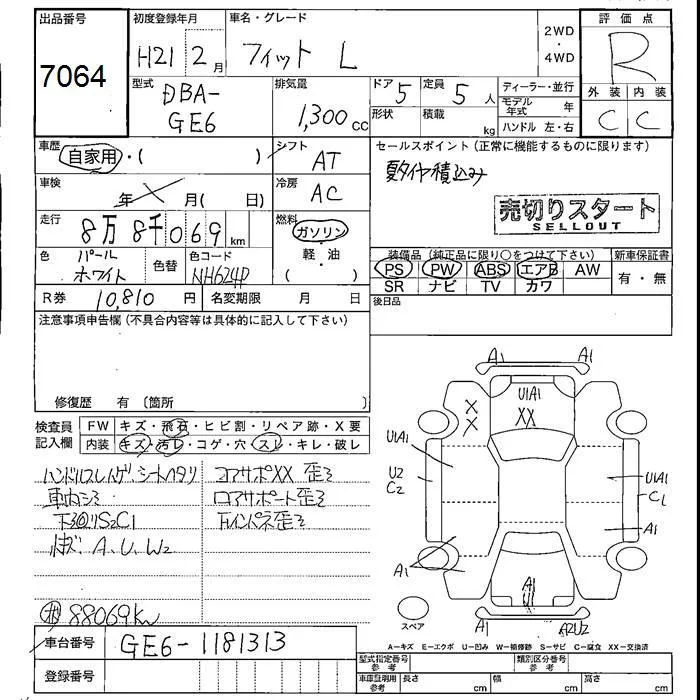 出品番号
7064
初度登録年月
H21 2月
車名・グレード
フィット L
2WD
・
4WD
評価点
R
外装 内装
C C
型式
DBA-
GE6
排気量
1,300 cc
ドア 5
定員 5 人
形状
積載 kg
ディーラー・並行
モデル年式 年
ハンドル 左・右
車歴
自家用・( )
シフト
AT
セールスポイント(正常に機能するものに限ります)
夏タイヤ積込み
売切りスタート
SELLOUT
車検
年 月( 日)
冷房
AC
走行
8万8千069 km
燃料
ガソリン
軽・油
( )
色
パール
ホワイト
色替
色コード
NH624P
装備品(純正品に限り○をつけて下さい)
PS PW ABS エアB AW
SR ナビ TV カワ
新車保証書
有・無
R券 10,810 円
名変期限 月 日
後日品
注意事項申告欄(不具合内容等は具体的に記入して下さい)
修復歴 有 〔箇所 〕
検査員
記入欄
FW キズ・飛石・ヒビ割・リペア跡・X要
内装 キズ・汚レ・コゲ・穴・スレ・キレ・破レ
ハンドルスレハゲ、シートヘタリ
車内シミ
下廻りS2C1
小キズ A、U、W2
コアサポXX 歪ミ
ロアサポート歪ミ
下インパネ歪ミ
88069km
車台番号 GE6-1181313
登録番号
A1 A1
U1A1
XX
X
X
U1A1
U2
C2
U1A1
C1
A1
A1
A1
U1
A1 A2U2
スペア
A-キズ E-エクボ U-凹み W-補修跡 S-サビ C-腐食 XX-交換済
型式指定番号
参考
類別区分番号
参考
車庫証明用
参考
長さ cm 幅 cm 高さ cm